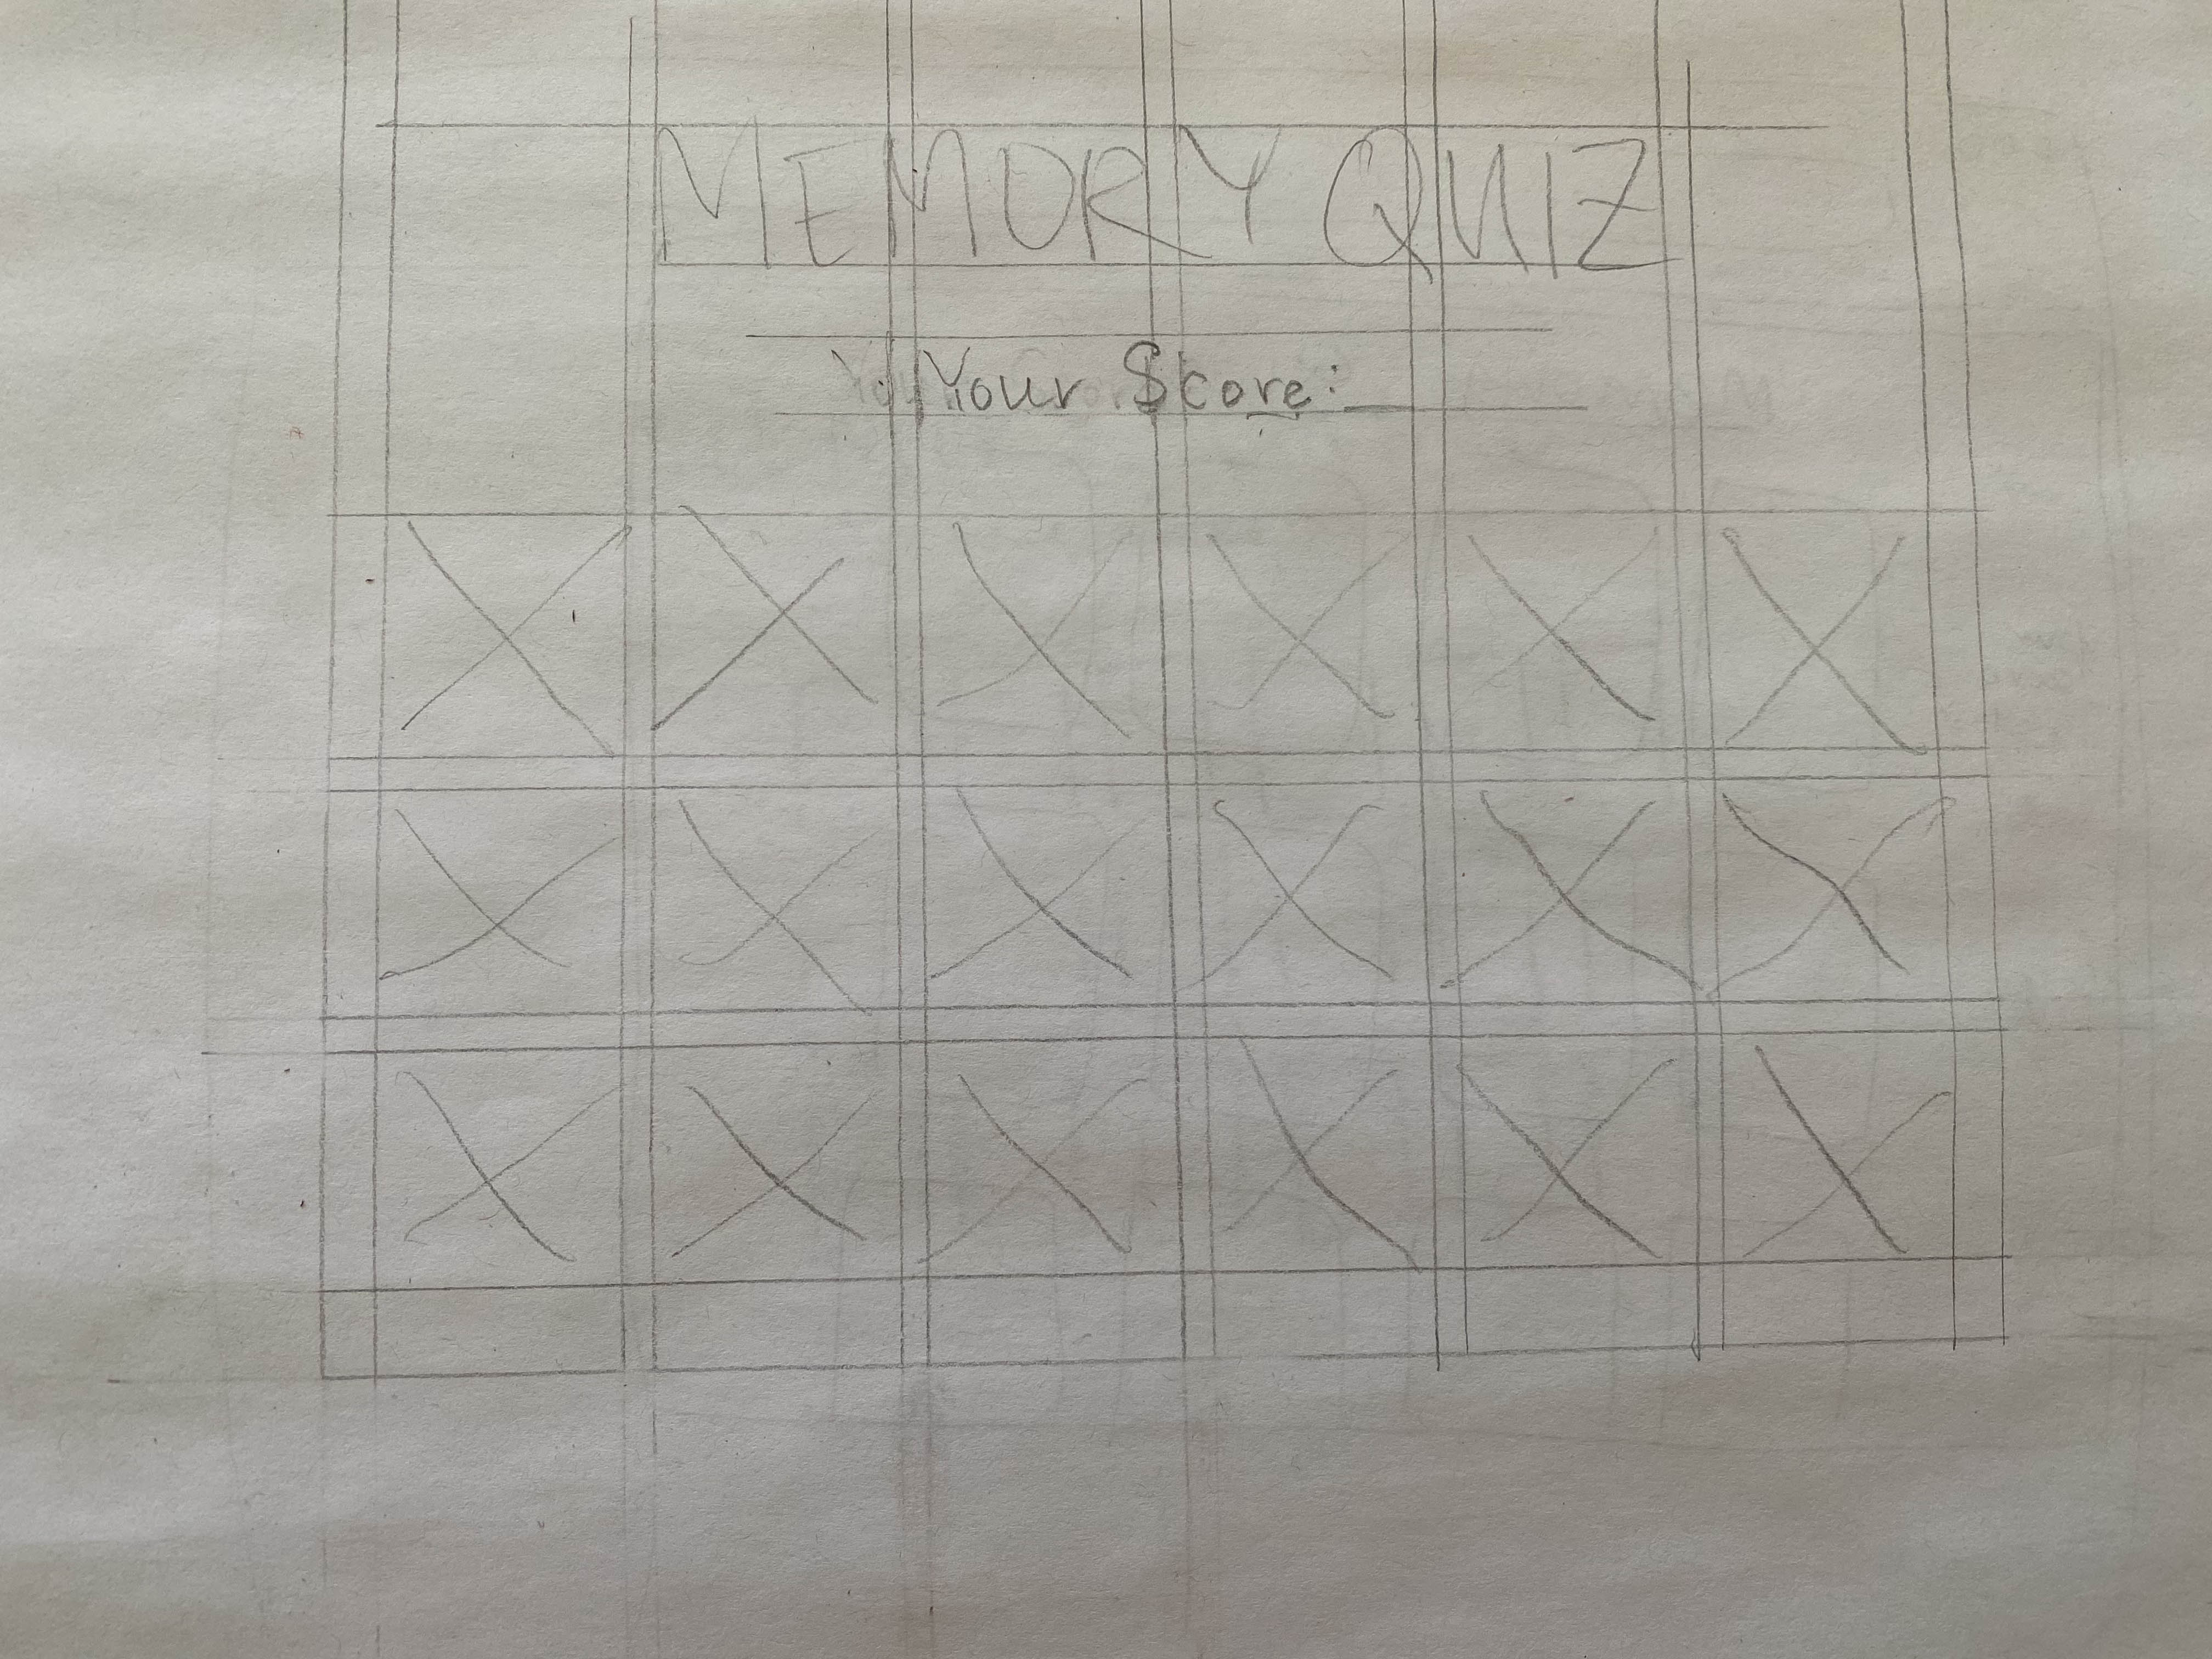 MEMORY QUIZ
Your Score: